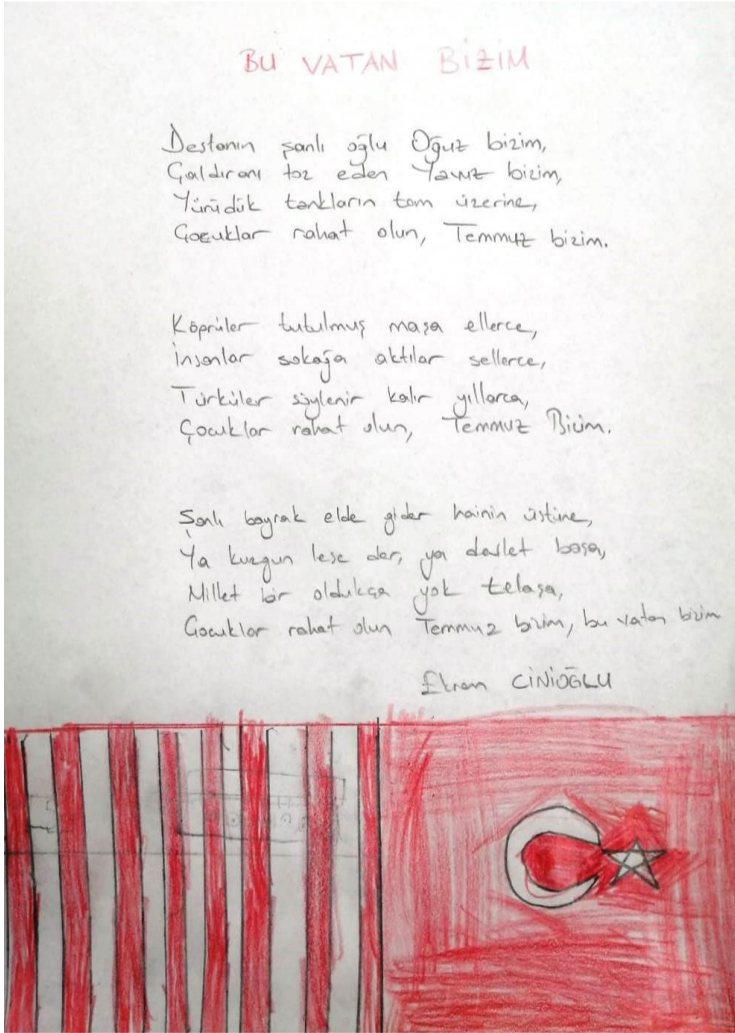 BU VATAN BİZİM
Destanın şanlı oğlu Oğuz bizim,
Çaldıranı toz eden Yavuz bizim,
Yürüdük tankların tam üzerine,
Çocuklar rahat olun, Temmuz bizim.
Köprüler tutulmuş maşa ellerce,
İnsanlar sokağa aktılar sellerce,
Türküler söylenir kalır yıllarca,
Çocuklar rahat olun, Temmuz Bizim.
Şanlı bayrak elde gider hainin üstüne,
Ya kuzgun leşe der, ya devlet başa,
Millet bir oldukça yok telaşa,
Çocuklar rahat olun Temmuz bizim, bu vatan bizim
Ekrem CİNİOĞLU